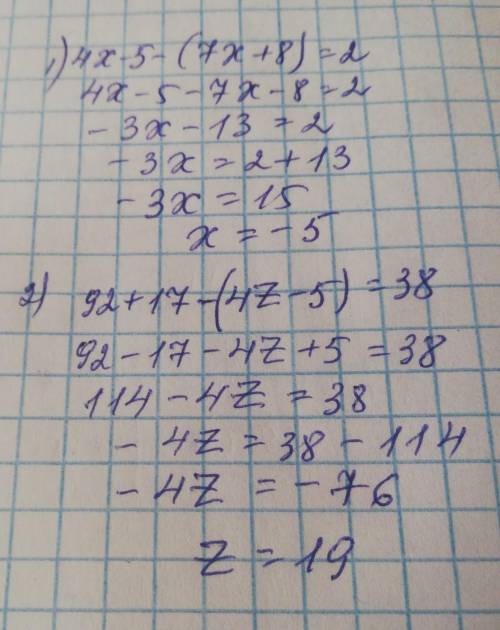 1) 4x-5-(7x+8)=2
4x-5-7x-8=2
-3x-13=2
-3x=2+13
-3x=15
x=-5
2) 92+17-(4z-5)=38
92-17-4z+5=38
114-4z=38
-4z=38-114
-4z=-76
z=19